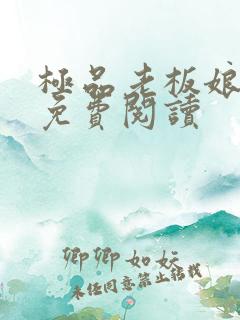 極品老板娘
免費閱讀
卿卿如妘
未經同意禁止轉載